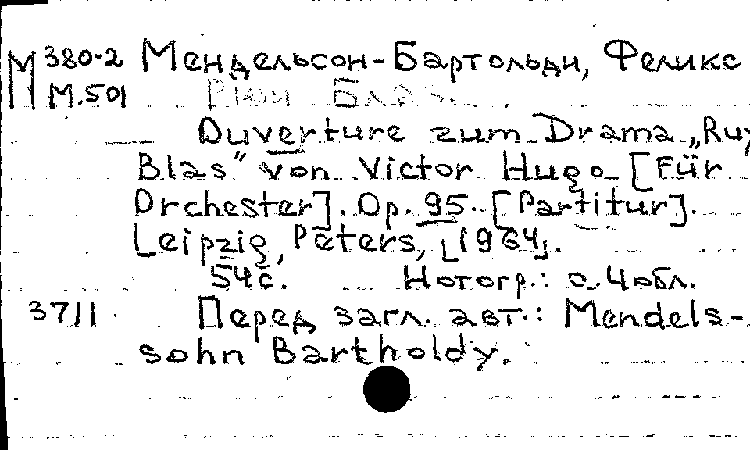 М 380-2 Мендельсон-Бартольди, Феликс
М.501 Рюи Блаз.
Ouverture zum Drama „Ruy
Blas" von Victor Hugo [Für
Orchester]. Op. 95. [Partitur].
Leipzig, Peters, [1964].
54 с. Нотогр.: с. 4 обл.
37/1 Перед загл. авт.: Mendels-
sohn Bartholdy.